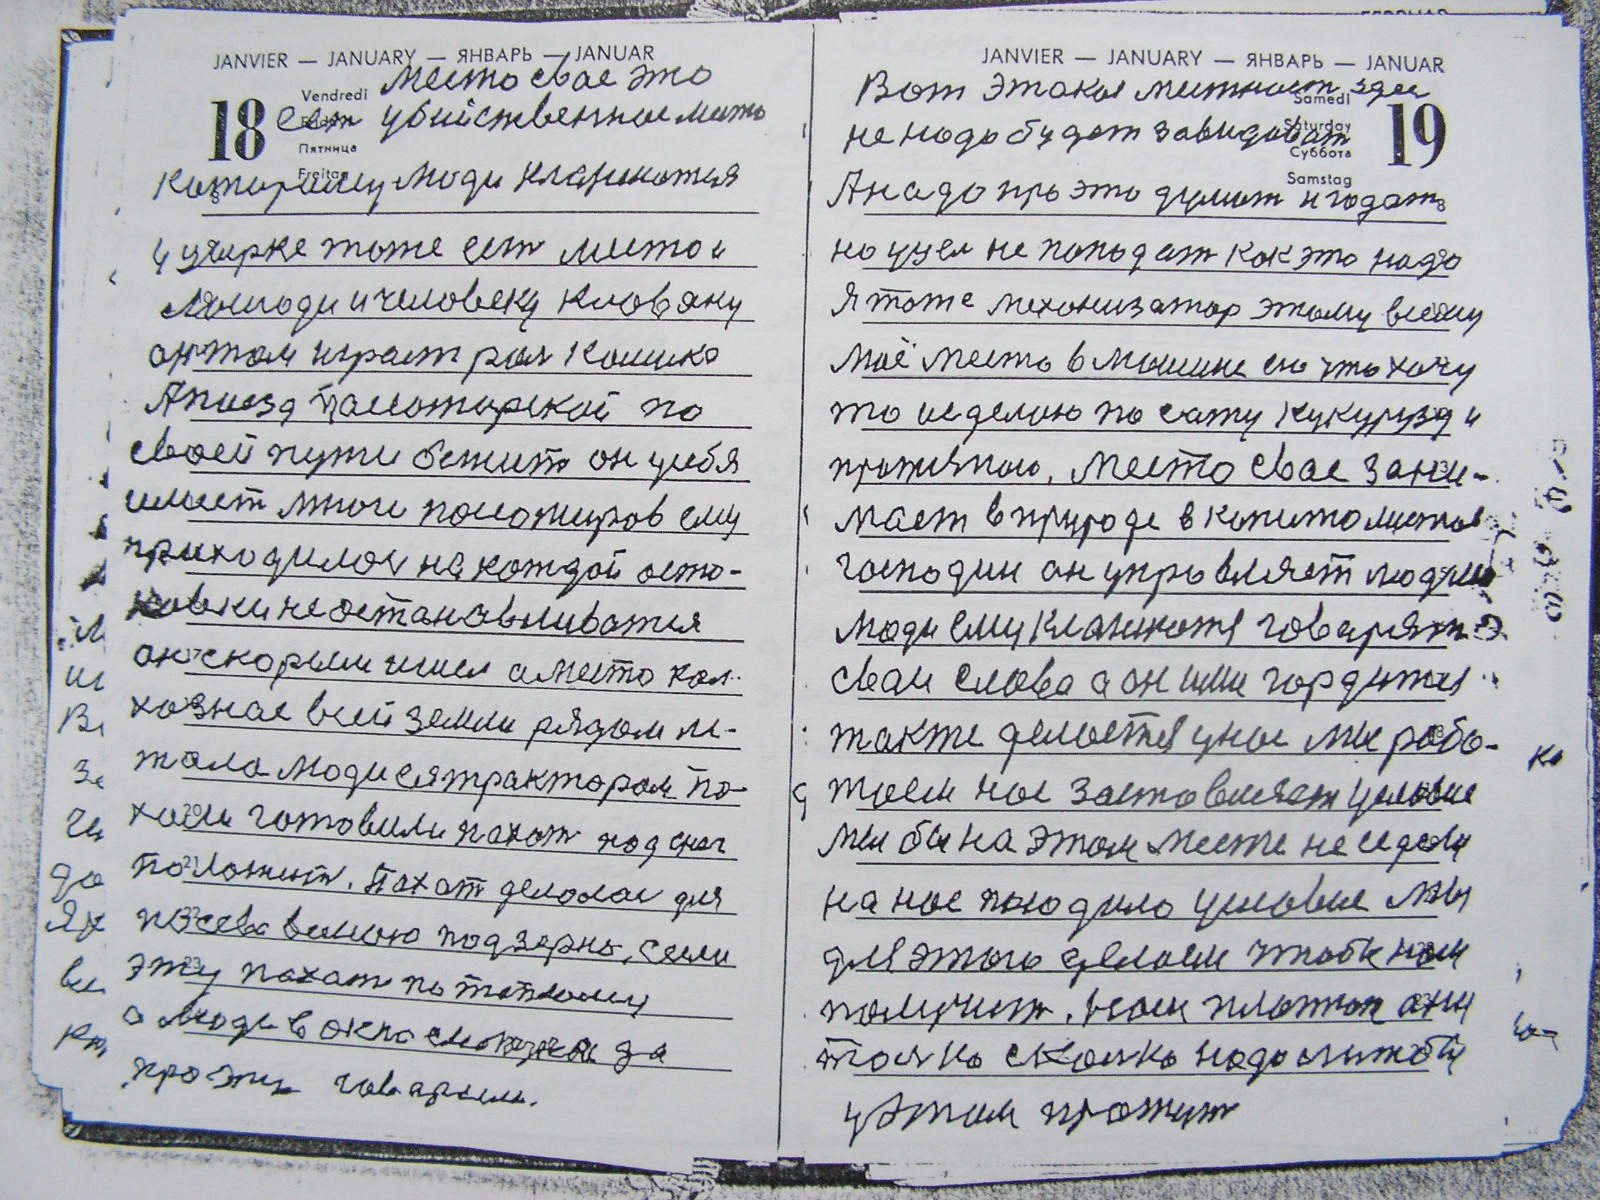 JANVIER — JANUARY — ЯНВАРЬ — JANUAR
18
Vendredi
Пятница
Freitag
Место свае это
Сет убийственное место
Которому люди кланяются
и церкве тоже ест место и
и человеку
он там играет рол
А поезд пассажирской по
своей пути бежит он у себя
имеет много пасожиров ему
приходилос на каждой оста-
новки не останавливатся
он скорым шел а место кол-
хозное всей земли рядом ле-
жала люди с трактором по-
хали готовили пахат под снег
положит. Пахат делалас для
посева весною под зерно, сеели
эту пахат по теплому
а люди в окна да
про эту гаварили.
JANVIER — JANUARY — ЯНВАРЬ — JANUAR
19
Samedi
Saturday
Суббота
Samstag
Вот этакая местност здес
не надо будет завидоват
А надо про это думат и гадат
но у цел не попадат как это надо
Я тоже механизатор этому всему
моё место в машине сто что хочу
то и сделаю по сату кукурузу и
Место свае зани-
мает в природе в капиталистов
господин он управляет людми
люди ему кланяются говарят
сваи слова а он ими гордится
также делается у нас мы рабо-
таем нас заставляет условие
мы бы на этом месте не седели
на нас находило условие мы
для этого делаем чтобы нам
получит. Нам платят ани
толко сколко надо чтобы
у этим прожит